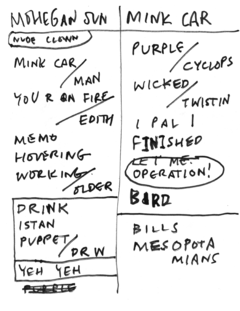 MOHEGAN SUN
NUDE CLOWN
MINK CAR
MAN
YOU R ON FIRE
EDITH
MEMO
HOVERING
WORKING
OLDER
DRINK
ISTAN
PUPPET
DRW
YEH YEH
PURPLE
MINK CAR
PURPLE
CYCLOPS
WICKED
TWISTIN
I PAL I
FINISHED
LET ME
OPERATION!
BIRD
BILLS
MESOPOTA
MIANS